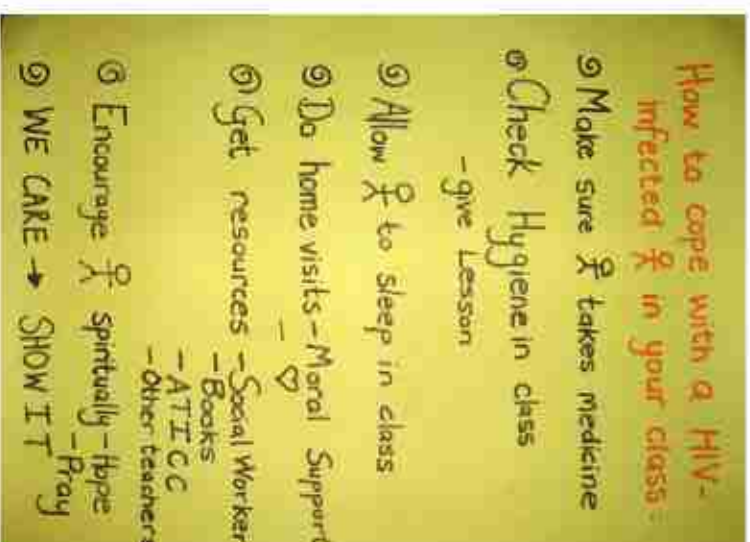 How to cope with a HIV-
infected in your class:
Make sure takes medicine
Check Hygiene in class
- give Lesson
Allow to sleep in class
Do home visits - Moral Support
-
Get resources - Social Worker
- Books
- ATICC
- Other teachers
Encourage spiritually - Hope
- Pray
WE CARE → SHOW IT